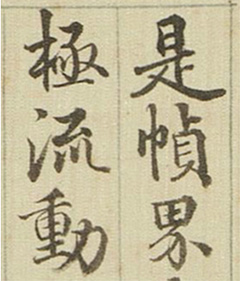 是幀界
極流動